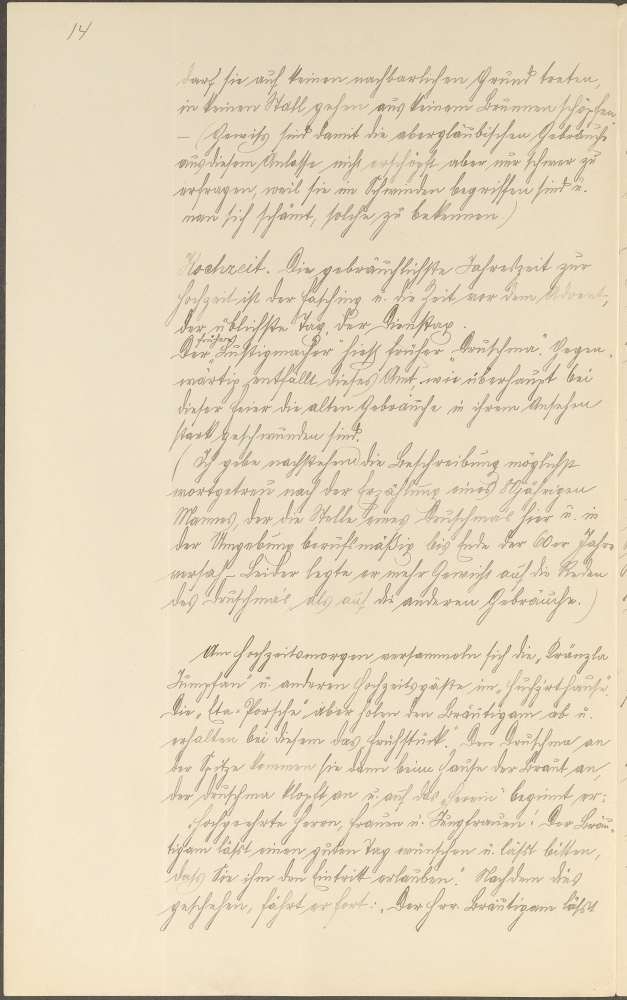 14
darf sie auf keinen nachbarlichen Grund treten,
in keinen Stall gehen aus keinem Brunnen schöpfen.
– (Gewiss sind damit die abergläubischen Gebräuche
aus diesem Anlasse nicht erschöpft aber nur schwer zu
erfragen, weil sie im Schwinden begriffen sind u.
man sich schämt, solche zu bekennen.)
Hochzeit. Die gebräuchlichste Jahreszeit zur
Hochzeit ist der Fasching u. die Zeit vor dem Advent,
der üblichste Tag, der Dienstag.
früher
Der "Lustigmacher" hieß früher "Druschma". Gegen-
wärtig entfällt dieses Amt, wie überhaupt bei
dieser Feier die alten Gebräuche in ihrem Ansehen
stark geschwunden sind.
(Ich gebe nachstehend die Beschreibung möglichst
wortgetreu nach der Erzählung eines jährigen
Mannes, der die Stelle eines Druschma's hier u. in
der Umgebung berufsmäßig bis Ende der 60er Jahre
versah – Leider legte er mehr Gewicht auf die Reden
des Druschma's als auf die anderen Gebräuche.)
Am Hochzeitsmorgen versammeln sich die "Kränzla
Jumpfan" u. anderen Hochzeitsgäste im "Huchzthause".
Die Porsche" aber holen den Bräutigam ab u.
erhalten bei diesem das "Frühstück". Den Druschma an
der Spitze kommen sie dann beim Hause der Braut an,
der Druschma klopft an u. auf das "Herein" beginnt er:
"Hochgeehrte Herren, Frauen u. Jungfrauen! Der Bräu-
tigam läßt einen guten Tag wünschen u. läßt bitten,
dass Sie ihm den Eintritt erlauben." Nachdem dies
geschehen, fährt er fort: "Der Hrr. Bräutigam läßt